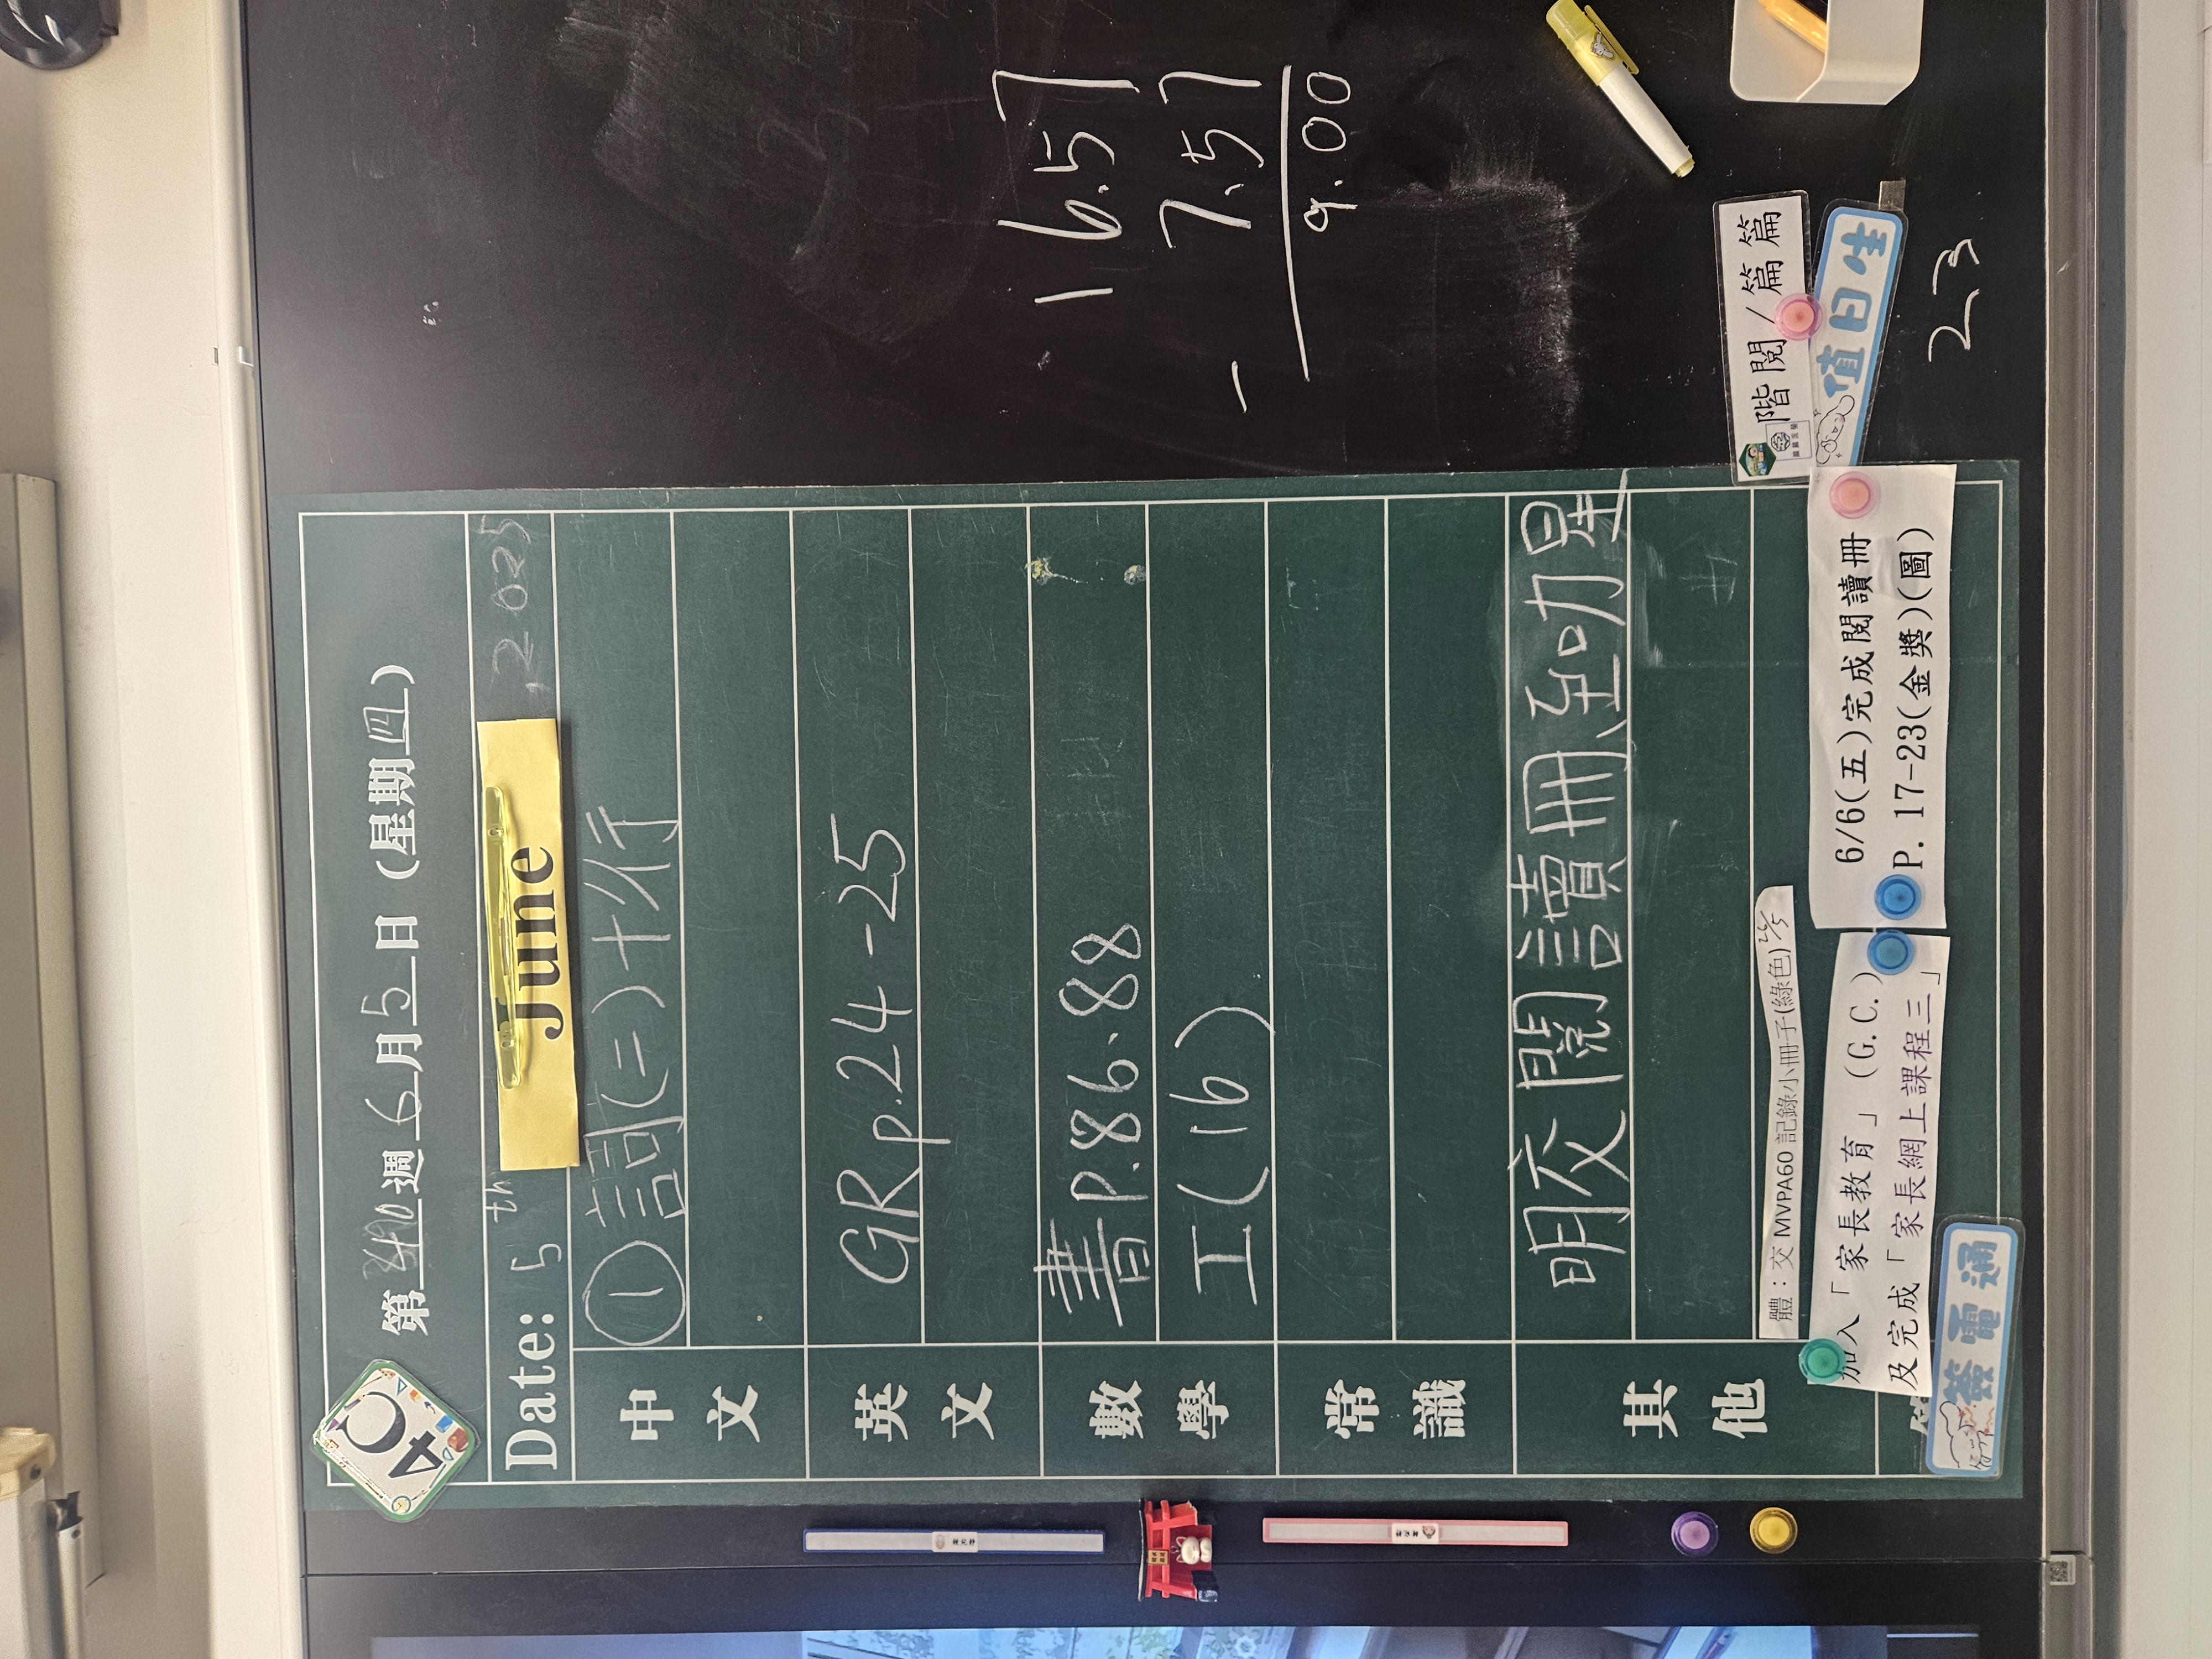 4C
第40週6月5日(星期四)
Date: 5th June 2025
中文
① 詞(二)十分行
英文
GR p.24-25
數學
書P.86.88
工(16)
常識
其他
明交閱讀冊至叻星
體：交 MVPA60 記錄小冊子(綠色) 26/5
加入「家長教育」(G.C.)
及完成「家長網上課程三」
6/6(五)完成閱讀冊
P. 17-23(金獎)(圖)
簽電通
階閱/篇篇
值日生
23
16.57
- 7.57
9.00